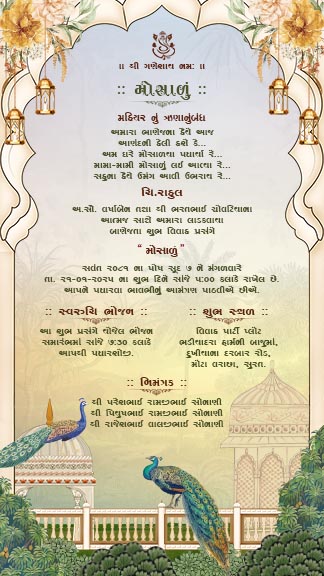 ॥ શ્રી ગણેશાય નમઃ ॥
:: મોસાળું ::
મહિયર નું ઋણાનુબંધ
અમારા ભાણેજના હૈયે આજ
આણંદની હેલી કહો કે...
અમ ઘરે મોસાળયા પધાર્યા રે...
મામા-મામી મોસાળું લઈ આવ્યા રે...
સહુના હૈયે ઉમંગ આવી ઉભરાય રે...
ચિ.રાહુલ
અ.સૌ. વર્ષાબેન તથા શ્રી ભરતભાઈ ચોવટિયાના
આત્મજ સાથે અમારા લાડકવાયા
ભાણેજના શુભ વિવાહ પ્રસંગે
“ મોસાળું ”
સવંત ૨૦૮૧ ના પોષ સુદ ૭ ને મંગળવારે
તા. ૨૧-૦૧-૨૦૨૫ ના શુભ દિને સાંજે ૫:૦૦ કલાકે રાખેલ છે.
આપને પધારવા ભાવભીનું આમંત્રણ પાઠવીએ છીએ.
:: સ્વરુચિ ભોજન ::
આ શુભ પ્રસંગે યોજેલ ભોજન
સમારંભમાં સાંજે ૭:૩૦ કલાકે
આપથી પધારશોજી.
:: શુભ સ્થળ ::
વિવાહ પાર્ટી પ્લોટ
ભડીયાદરા ફાર્મની બાજુમાં,
દુખીયાના દરબાર રોડ,
મોટા વરાછા, સુરત.
:: નિમંત્રક ::
શ્રી પરેશભાઈ રામજીભાઈ સોજાણી
શ્રી વિપુલભાઈ રામજીભાઈ સોજાણી
શ્રી રાજેશભાઈ લાલજીભાઈ સોજાણી